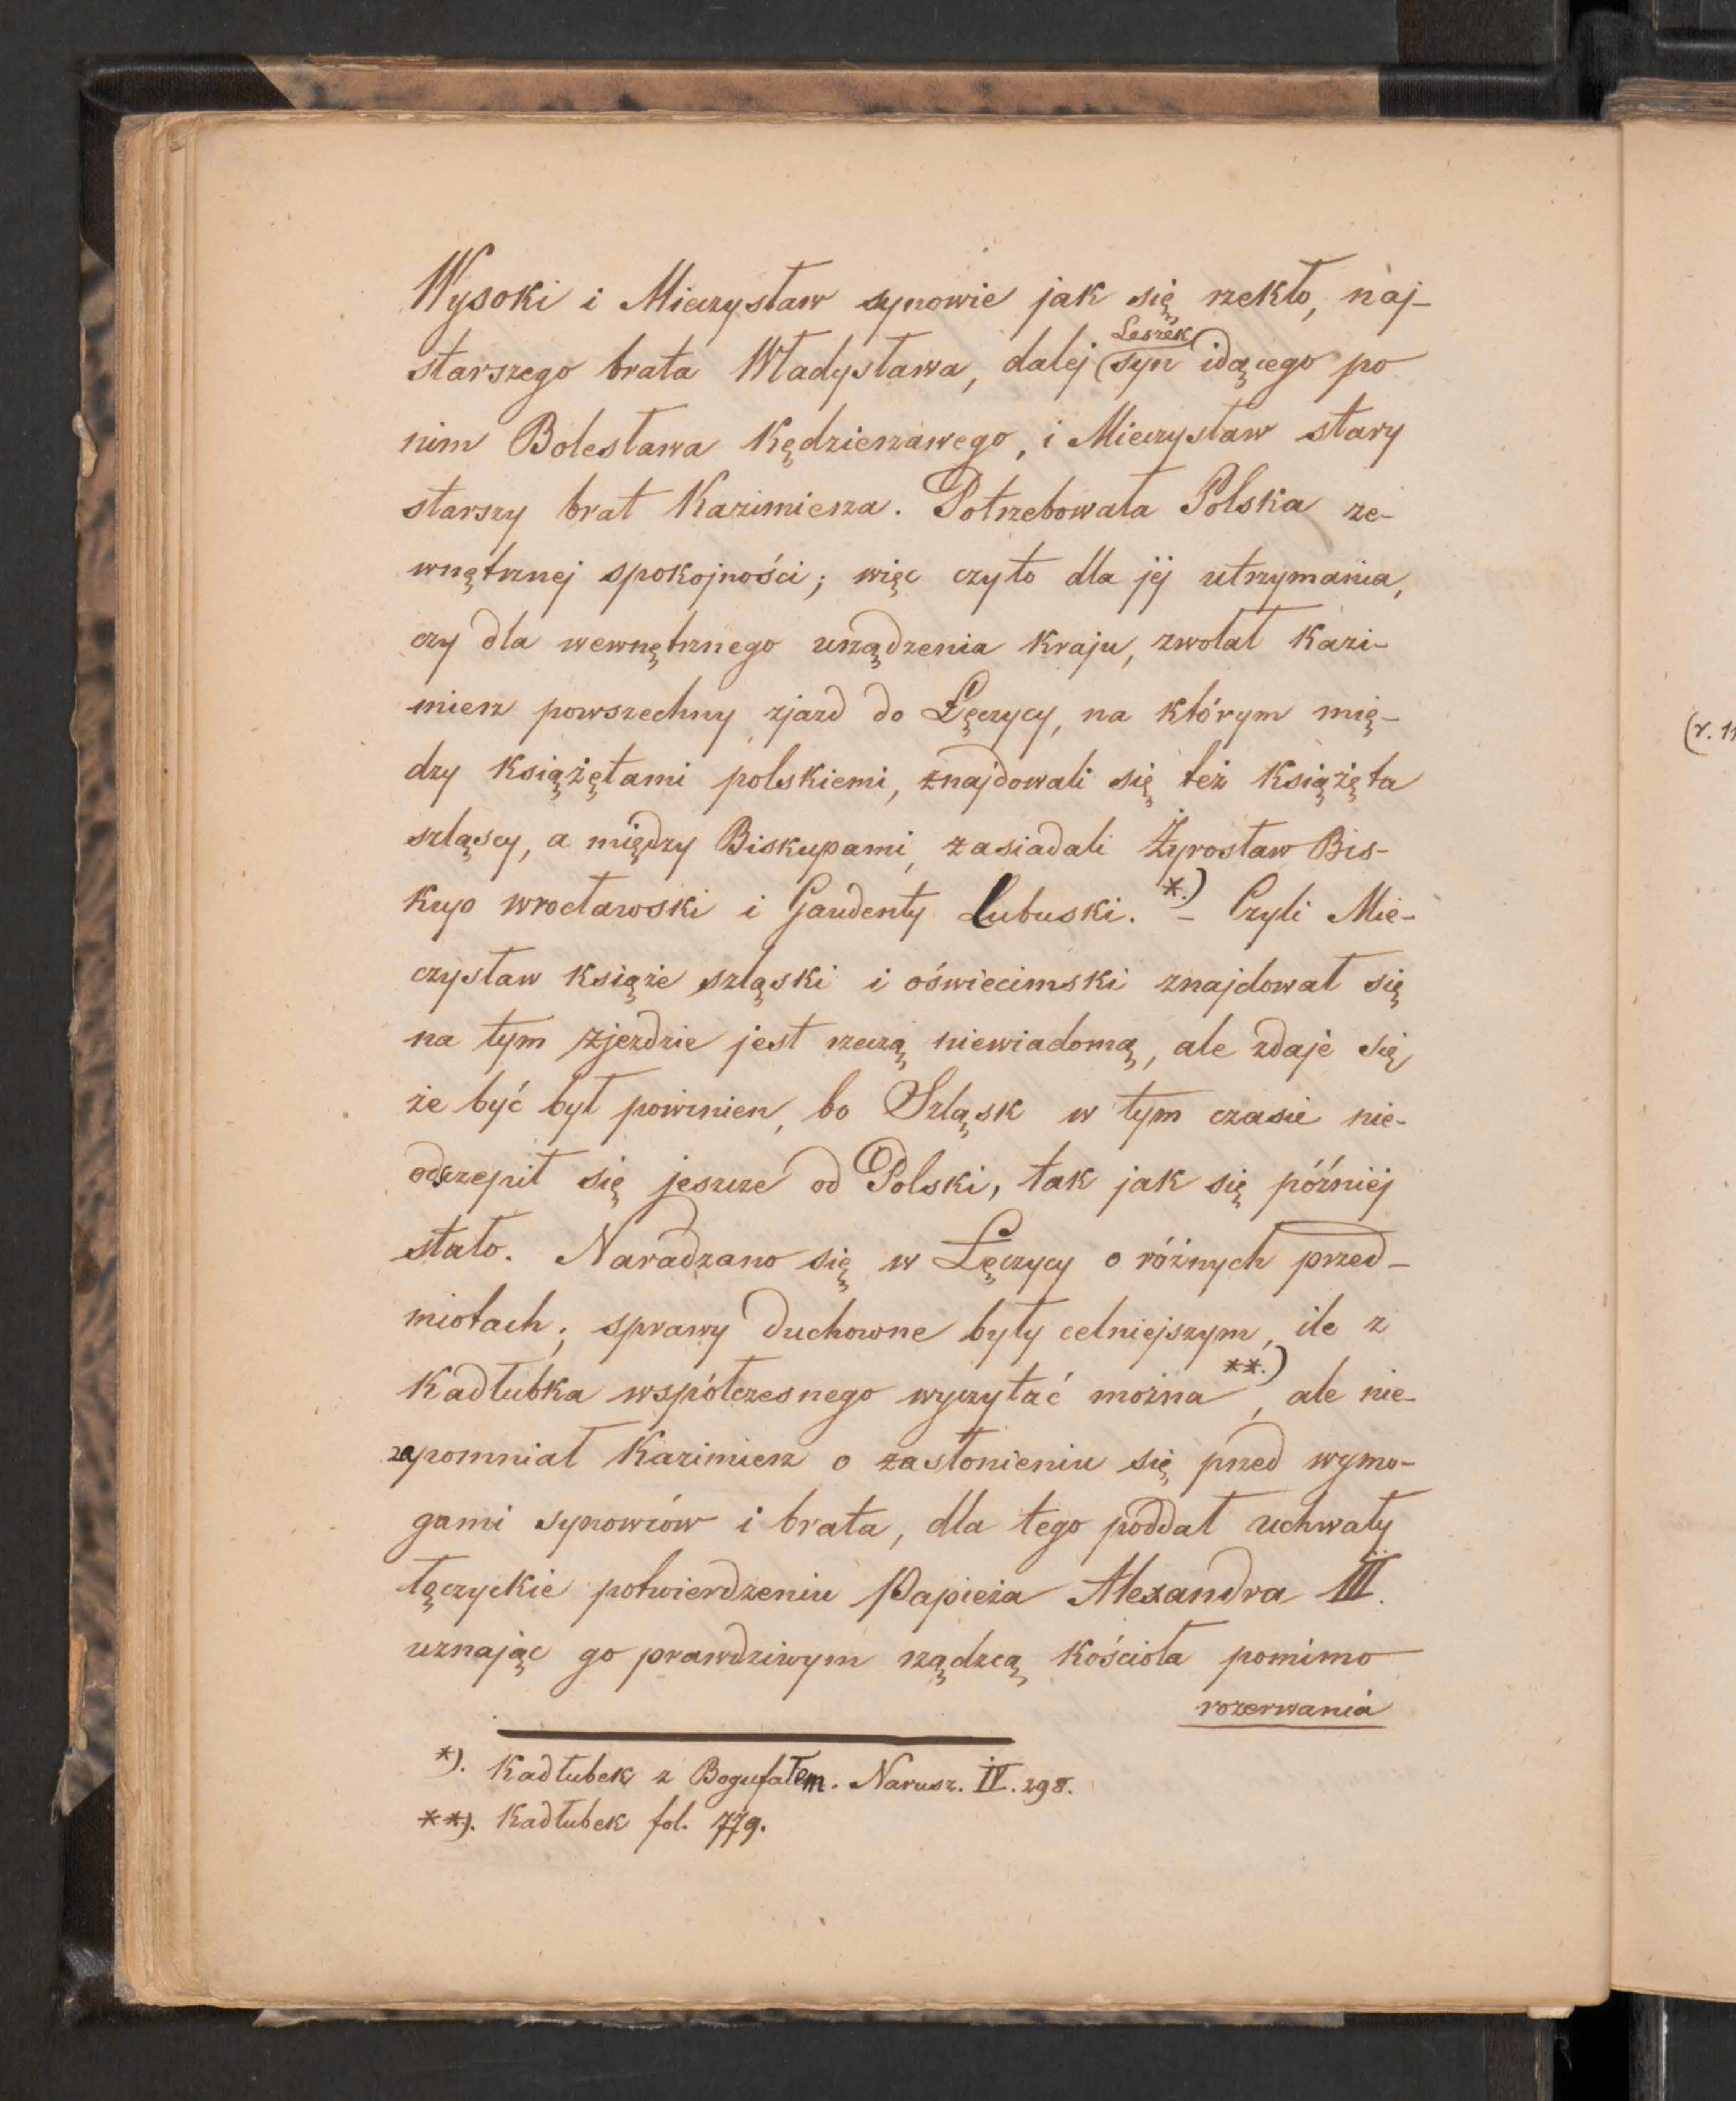 Wysoki i Mieczysław synowie jak się rzekło, naj-
starszego brata Władysława, dalej (Leszek) syn idącego po
nim Bolesława Kędzierzawego, i Mieczysław stary
starszy brat Kazimierza. Potrzebowała Polska ze-
wnętrznej spokojności; więc czyto dla jéj utrzymania,
czy dla wewnętrznego urządzenia kraju, zwołał Kazi-
mierz powszechny zjazd do Łęczycy, na którym mię-
dzy książętami polskiemi, znajdowali się też książęta
szląscy, a między Biskupami, zasiadali Żyrosław Bis-
kup wrocławski i Gaudenty Lubuski. *.) – Czyli Mie-
czysław książe szląski i oświecimski znajdował się
na tym zjezdzie jest rzeczą niewiadomą, ale zdaje się
że być był powinien, bo Szląsk w tym czasie nie-
odszczepił się jeszcze od Polski, tak jak się później
stało. Naradzano się w Łęczycy o różnych przed-
miotach; sprawy duchowne były celniejszym, ile z
Kadłubka współczesnego wyczytać można **.), ale nie-
zapomniał Kazimierz o zasłonieniu się przed wymo-
gami synowców i brata, dla tego poddał uchwały
łęczyckie potwierdzeniu Papieża Alexandra III.
uznając go prawdziwym rządzcą kościoła pomimo
rozerwania
*). Kadłubek z Bogufałem. Narusz. IV. 298.
**). Kadłubek fol. 779.
(r. 11